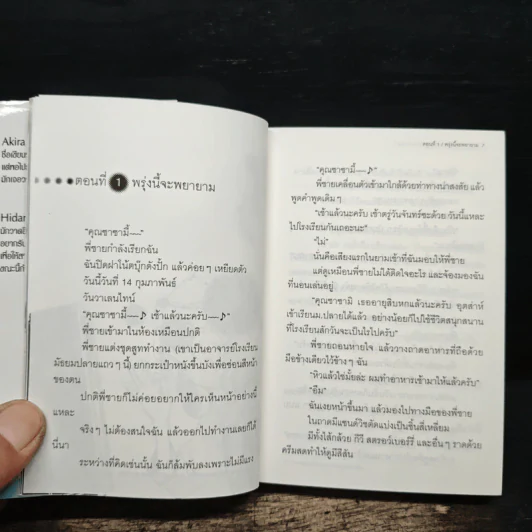 Akira
Hidar
ตอนที่ 1 พรุ่งนี้จะพยายาม
"คุณซาซามี้——"
พี่ชายกำลังเรียกฉัน
ฉันปิดฝาโน้ตบุ๊กดังปั้ก แล้วค่อยๆ เหยียดตัว
วันนี้วันที่ 14 กุมภาพันธ์
วันวาเลนไทน์
"คุณซาซามี้——♪ เช้าแล้วนะครับ——♪"
พี่ชายเข้ามาในห้องเหมือนปกติ
พี่ชายแต่งชุดสูททำงาน (เขาเป็นอาจารย์โรงเรียน
มัธยมปลายแถวๆ นี้) ยกกระเป๋าหนังขึ้นบังเพื่อซ่อนสีหน้า
ของตน
ปกติพี่ชายก็ไม่ค่อยอยากให้ใครเห็นหน้าอย่างนี้
แหละ
จริงๆ ไม่ต้องสนใจฉัน แล้วออกไปทำงานเลยก็ได้
นี่นา
ระหว่างที่คิดเช่นนั้น ฉันก็ล้มพับลงเพราะไม่มีแรง
ตอนที่ 1 : พรุ่งนี้จะพยายาม 7
"คุณซาซามี้——♪"
พี่ชายเคลื่อนตัวเข้ามาใกล้ด้วยท่าทางน่าสงสัย แล้ว
พูดคำพูดเดิมๆ
"เช้าแล้วนะครับ เช้าตรู่วันจันทร์ซะด้วย วันนี้แหละ
ไปโรงเรียนกันเถอะนะ"
"ไม่"
นั่นคือเสียงแรกในยามเช้าที่ฉันมอบให้พี่ชาย
แต่ดูเหมือนพี่ชายไม่ได้ติดใจอะไร และจ้องมองฉัน
ที่นอนเล่นอยู่
"คุณซาซามิ เธออายุสิบหกแล้วนะครับ อุตส่าห์
เข้าเรียนม.ปลายได้แล้ว อย่างน้อยก็ไปใช้ชีวิตสนุกสนาน
ที่โรงเรียนสักวันจะเป็นไรไปครับ"
พี่ชายถอนหายใจ แล้ววางถาดอาหารที่ถือด้วย
มือข้างเดียวไว้ข้างๆ ฉัน
"หิวแล้วใช่มั้ยล่ะ ผมทำอาหารเช้ามาให้แล้วครับ"
"อืม"
ฉันเงยหน้าขึ้นมา แล้วมองไปทางมือของพี่ชาย
ในถาดมีแซนด์วิชตัดแบ่งเป็นชิ้นสี่เหลี่ยม
มีทั้งไส้กล้วย กีวี สตรอว์เบอร์รี่ และอื่นๆ ราดด้วย
ครีมสดทำให้ดูมีสีสัน